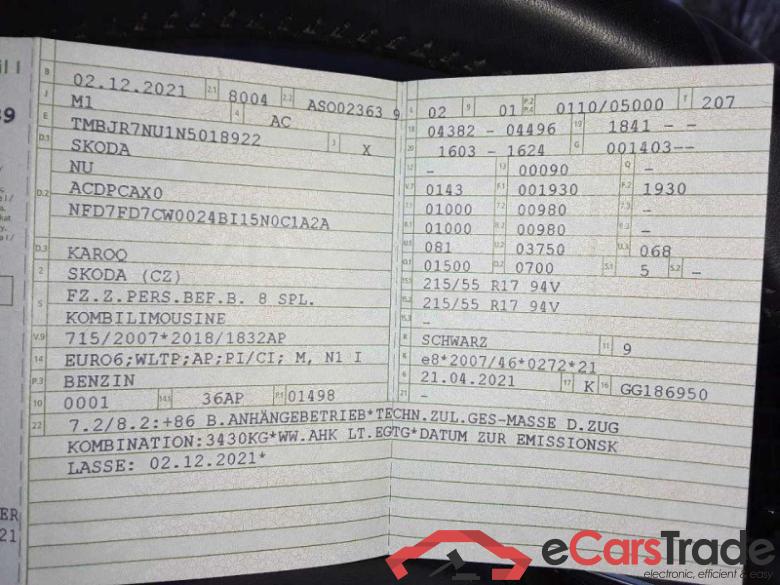 il I
39
ER
21
B 02.12.2021 2.1 8004 2.2 ASO02363 9
J M1 4 AC
E TMBJR7NU1N5018922 3 X
D.1 SKODA
NU
D.2 ACDPCAX0
NFD7FD7CW0024BI15N0C1A2A
D.3 KAROQ
2 SKODA (CZ)
5 FZ.Z.PERS.BEF.B. 8 SPL.
KOMBILIMOUSINE
V.9 715/2007*2018/1832AP
14 EURO6;WLTP;AP;PI/CI; M, N1 I
P.3 BENZIN
10 0001 14.1 36AP P.1 01498
22 7.2/8.2:+86 B.ANHÄNGEBETRIEB*TECHN.ZUL.GES-MASSE D.ZUG
KOMBINATION:3430KG*WW.AHK LT.EGTG*DATUM ZUR EMISSIONSK
LASSE: 02.12.2021*
L 02 9 01 P.2 P.4 0110/05000 T 207
18 04382 - 04496 19 1841 - -
20 1603 - 1624 G 001403--
12 - 13 00090 Q -
V.7 0143 F.1 001930 F.2 1930
7.1 01000 7.2 00980 7.3 -
8.1 01000 8.2 00980 8.3 -
U.1 081 U.2 03750 U.3 068
O.1 01500 O.2 0700 S.1 5 S.2 -
15.1 215/55 R17 94V
15.2 215/55 R17 94V
15.3 -
R SCHWARZ 11 9
K e8*2007/46*0272*21
6 21.04.2021 17 K 16 GG186950
21 -
eCarsTrade
electronic, efficient & easy